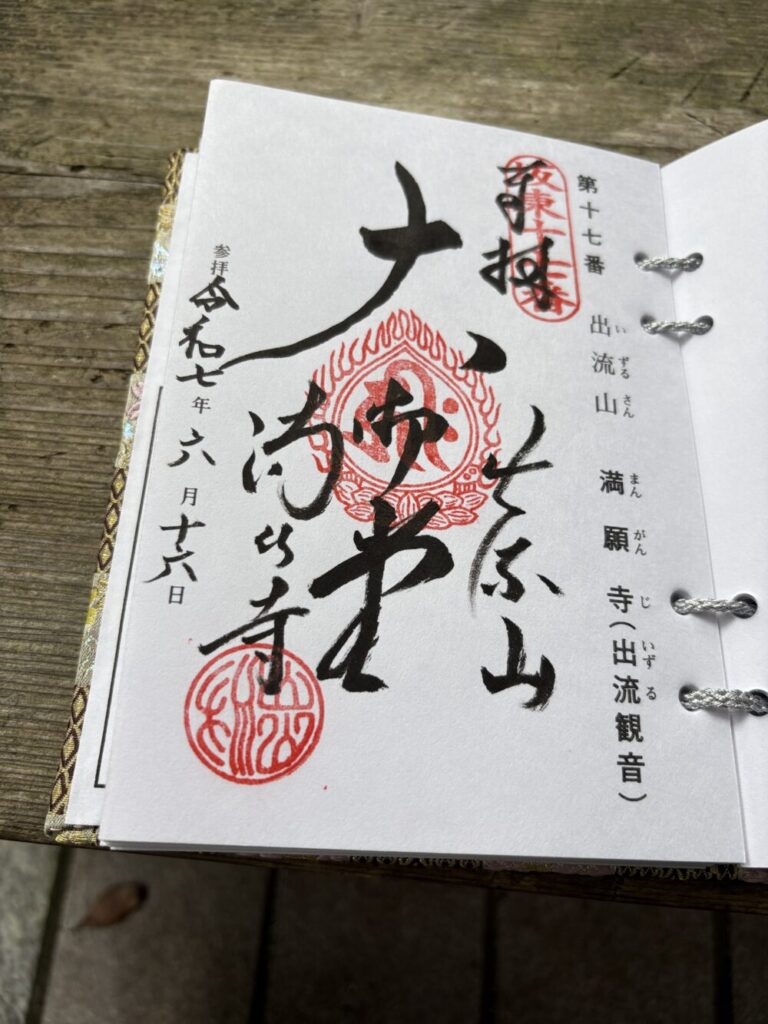 第十七番 出流山 満願寺(出流観音)
いずるさん まんがんじ いずる
坂東十七番
奉拝
出流山
大御堂
満願寺
参拝 令和七年六月十六日